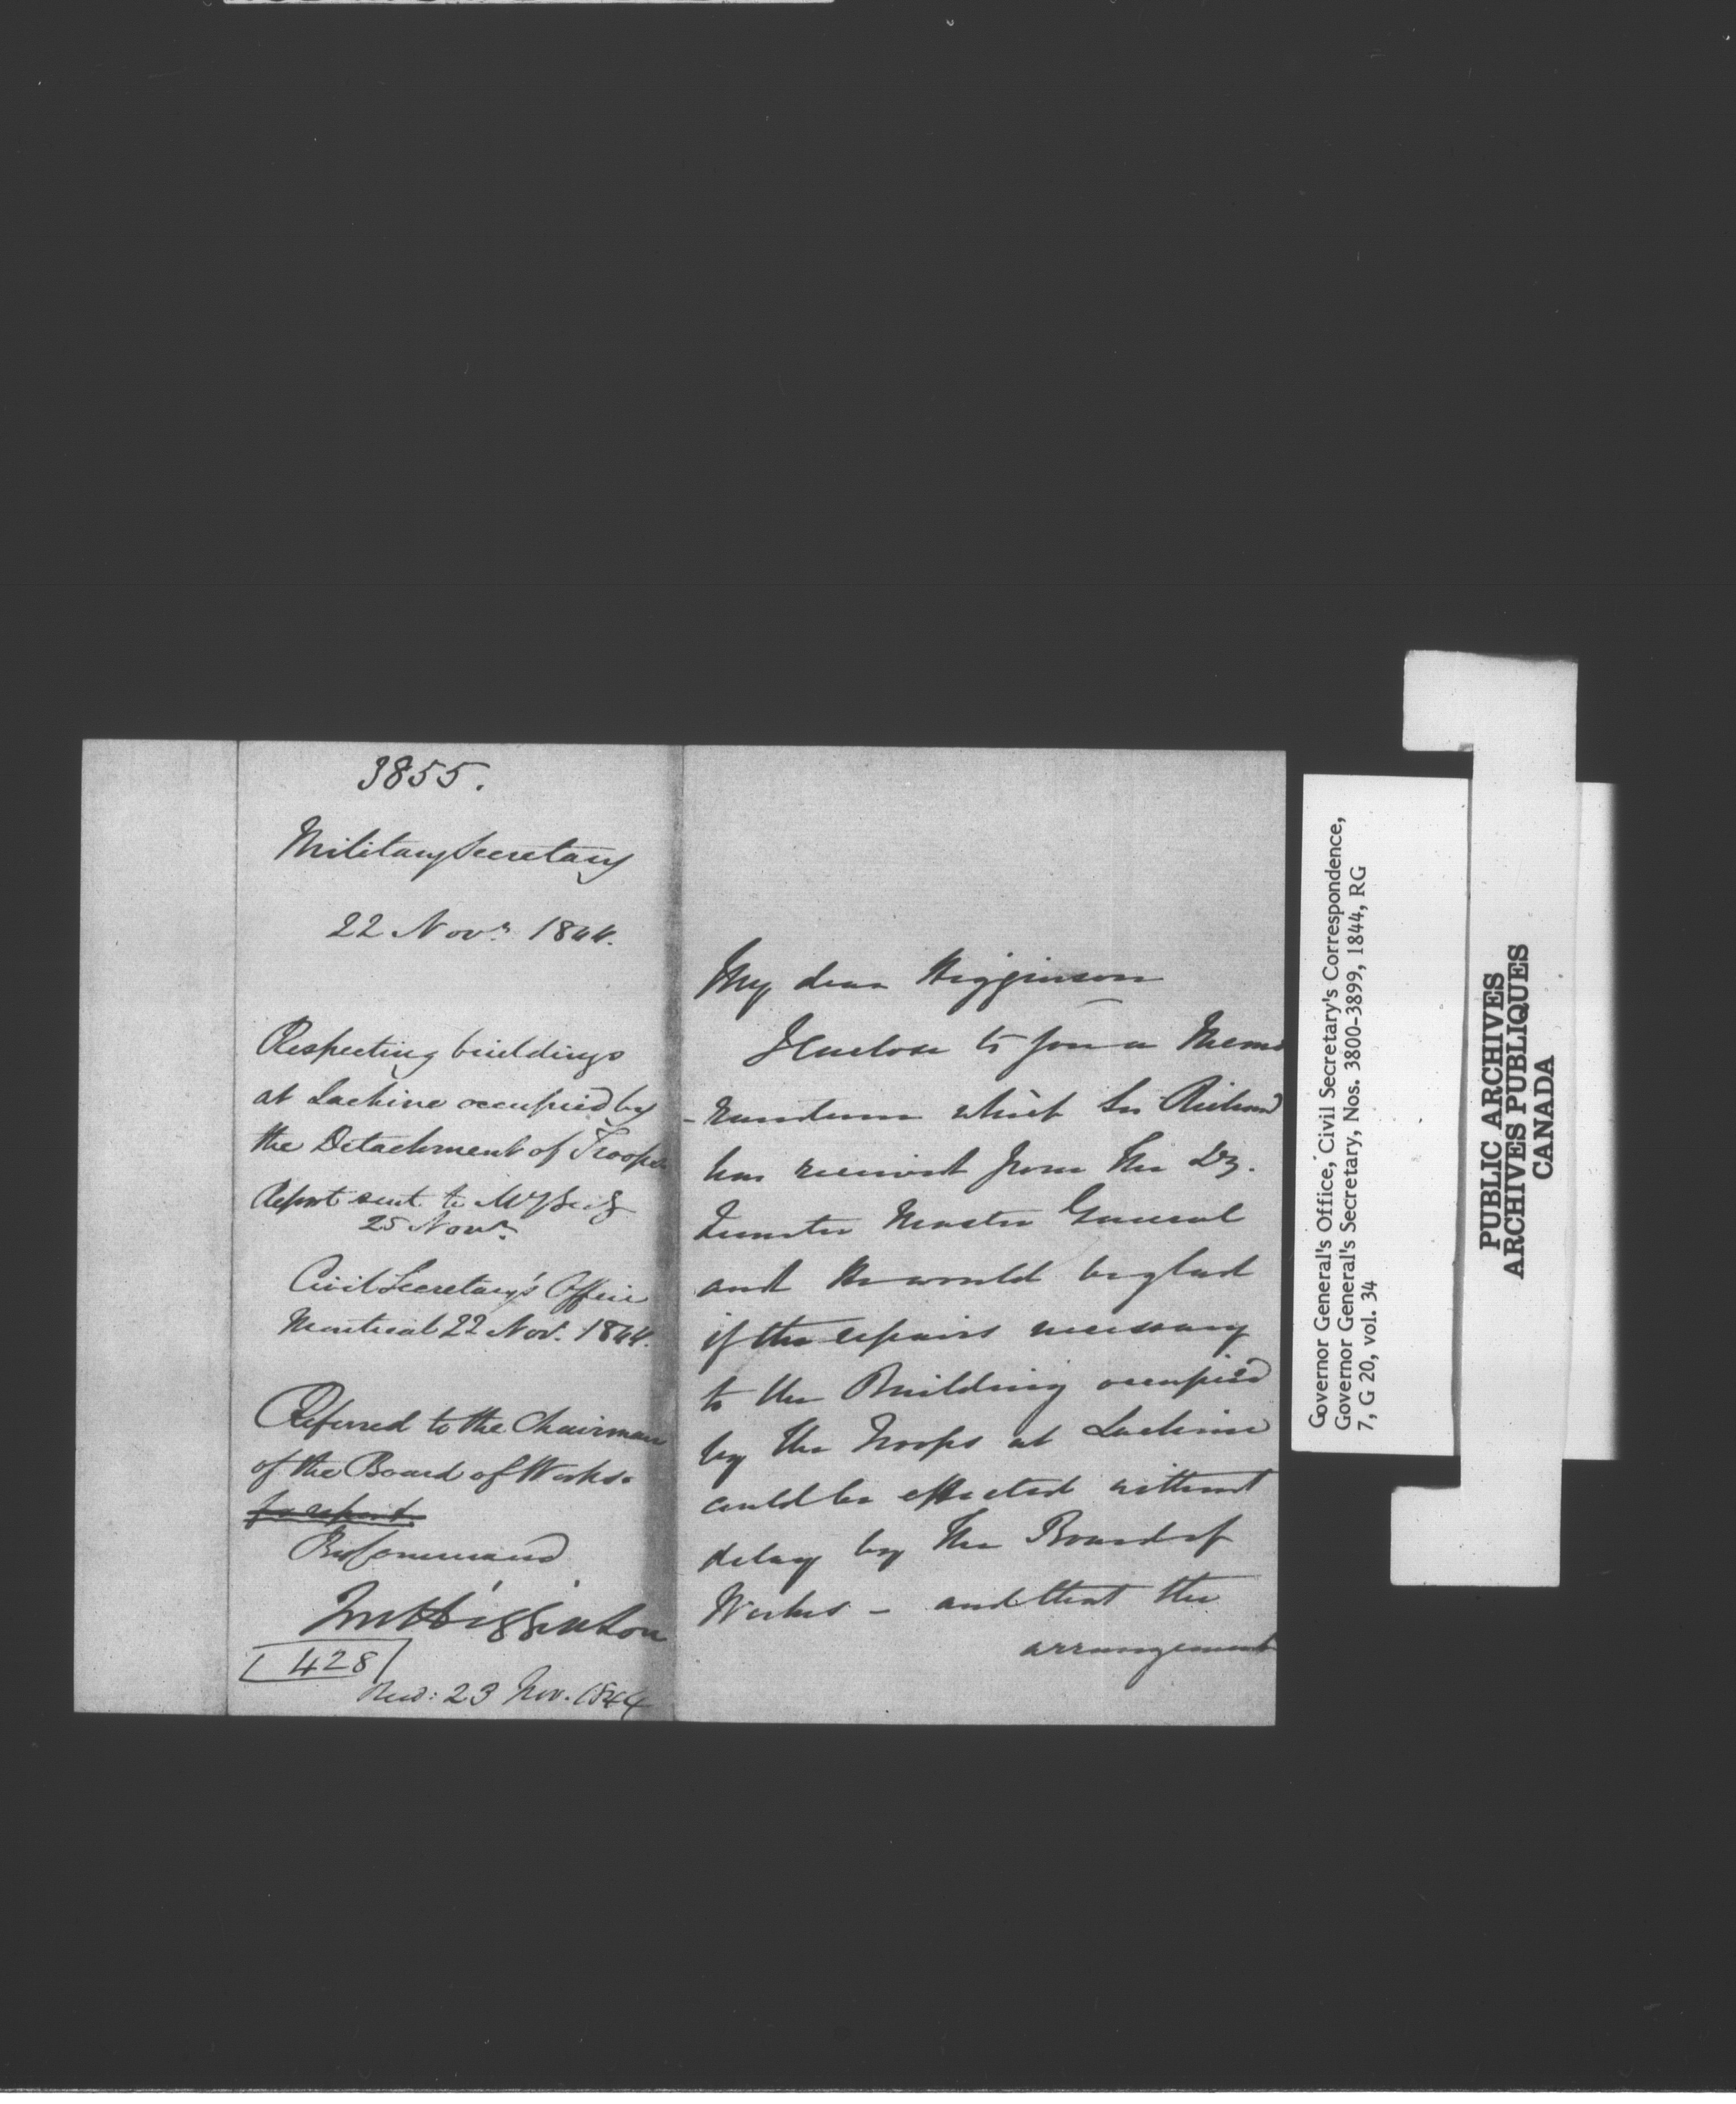 3855.
Military Secretary
22 Novr. 1844.
Respecting buildings
at Lachine occupied by
the Detachment of Troops
Report sent to My Secy
25 Novr.
Civil Secretary's Office
Montreal 22 Nov. 1844.
Referred to the Chairman
of the Board of Works.
for report.
By Command
JM Higginson
428
Recd: 23 Nov. 1844
My dear Higginson
I enclose to you a Memo
-randum which Sir Richard
has received from the Dy.
Quarter Master General
and He would be glad
if the repairs necessary
to the Building occupied
by the Troops at Lachine
could be effected without
delay by the Board of
Works - and that the
arrangement
Governor General's Office, Civil Secretary's Correspondence,
Governor General's Secretary, Nos. 3800-3899, 1844, RG
7, G 20, vol. 34
PUBLIC ARCHIVES
ARCHIVES PUBLIQUES
CANADA